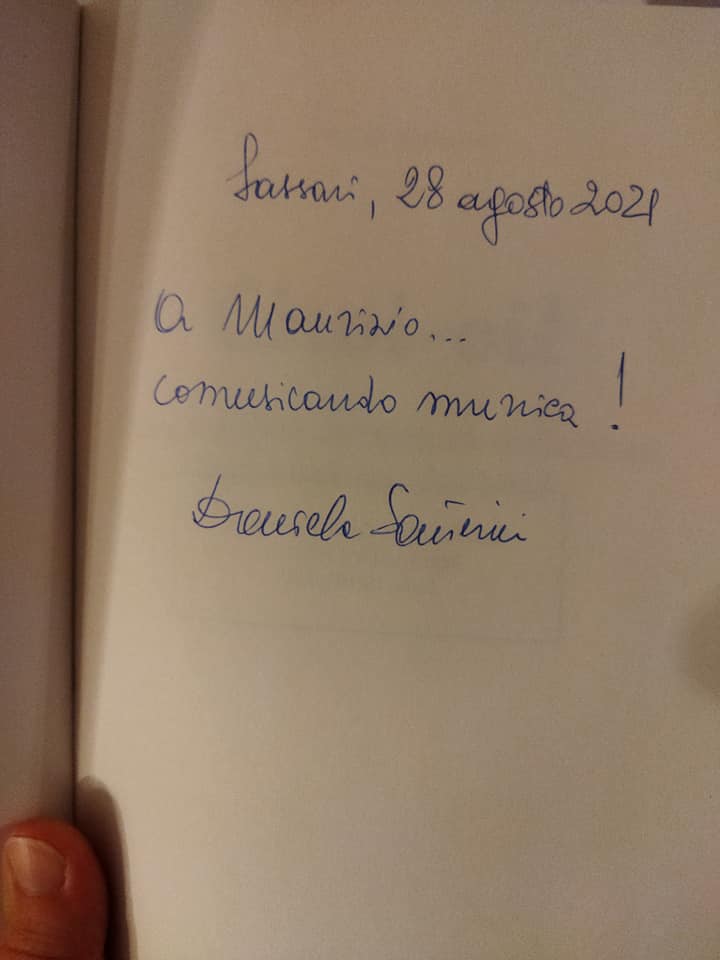 Sassari, 28 agosto 2021
A Maurizio...
comusicando musica!
Daniela